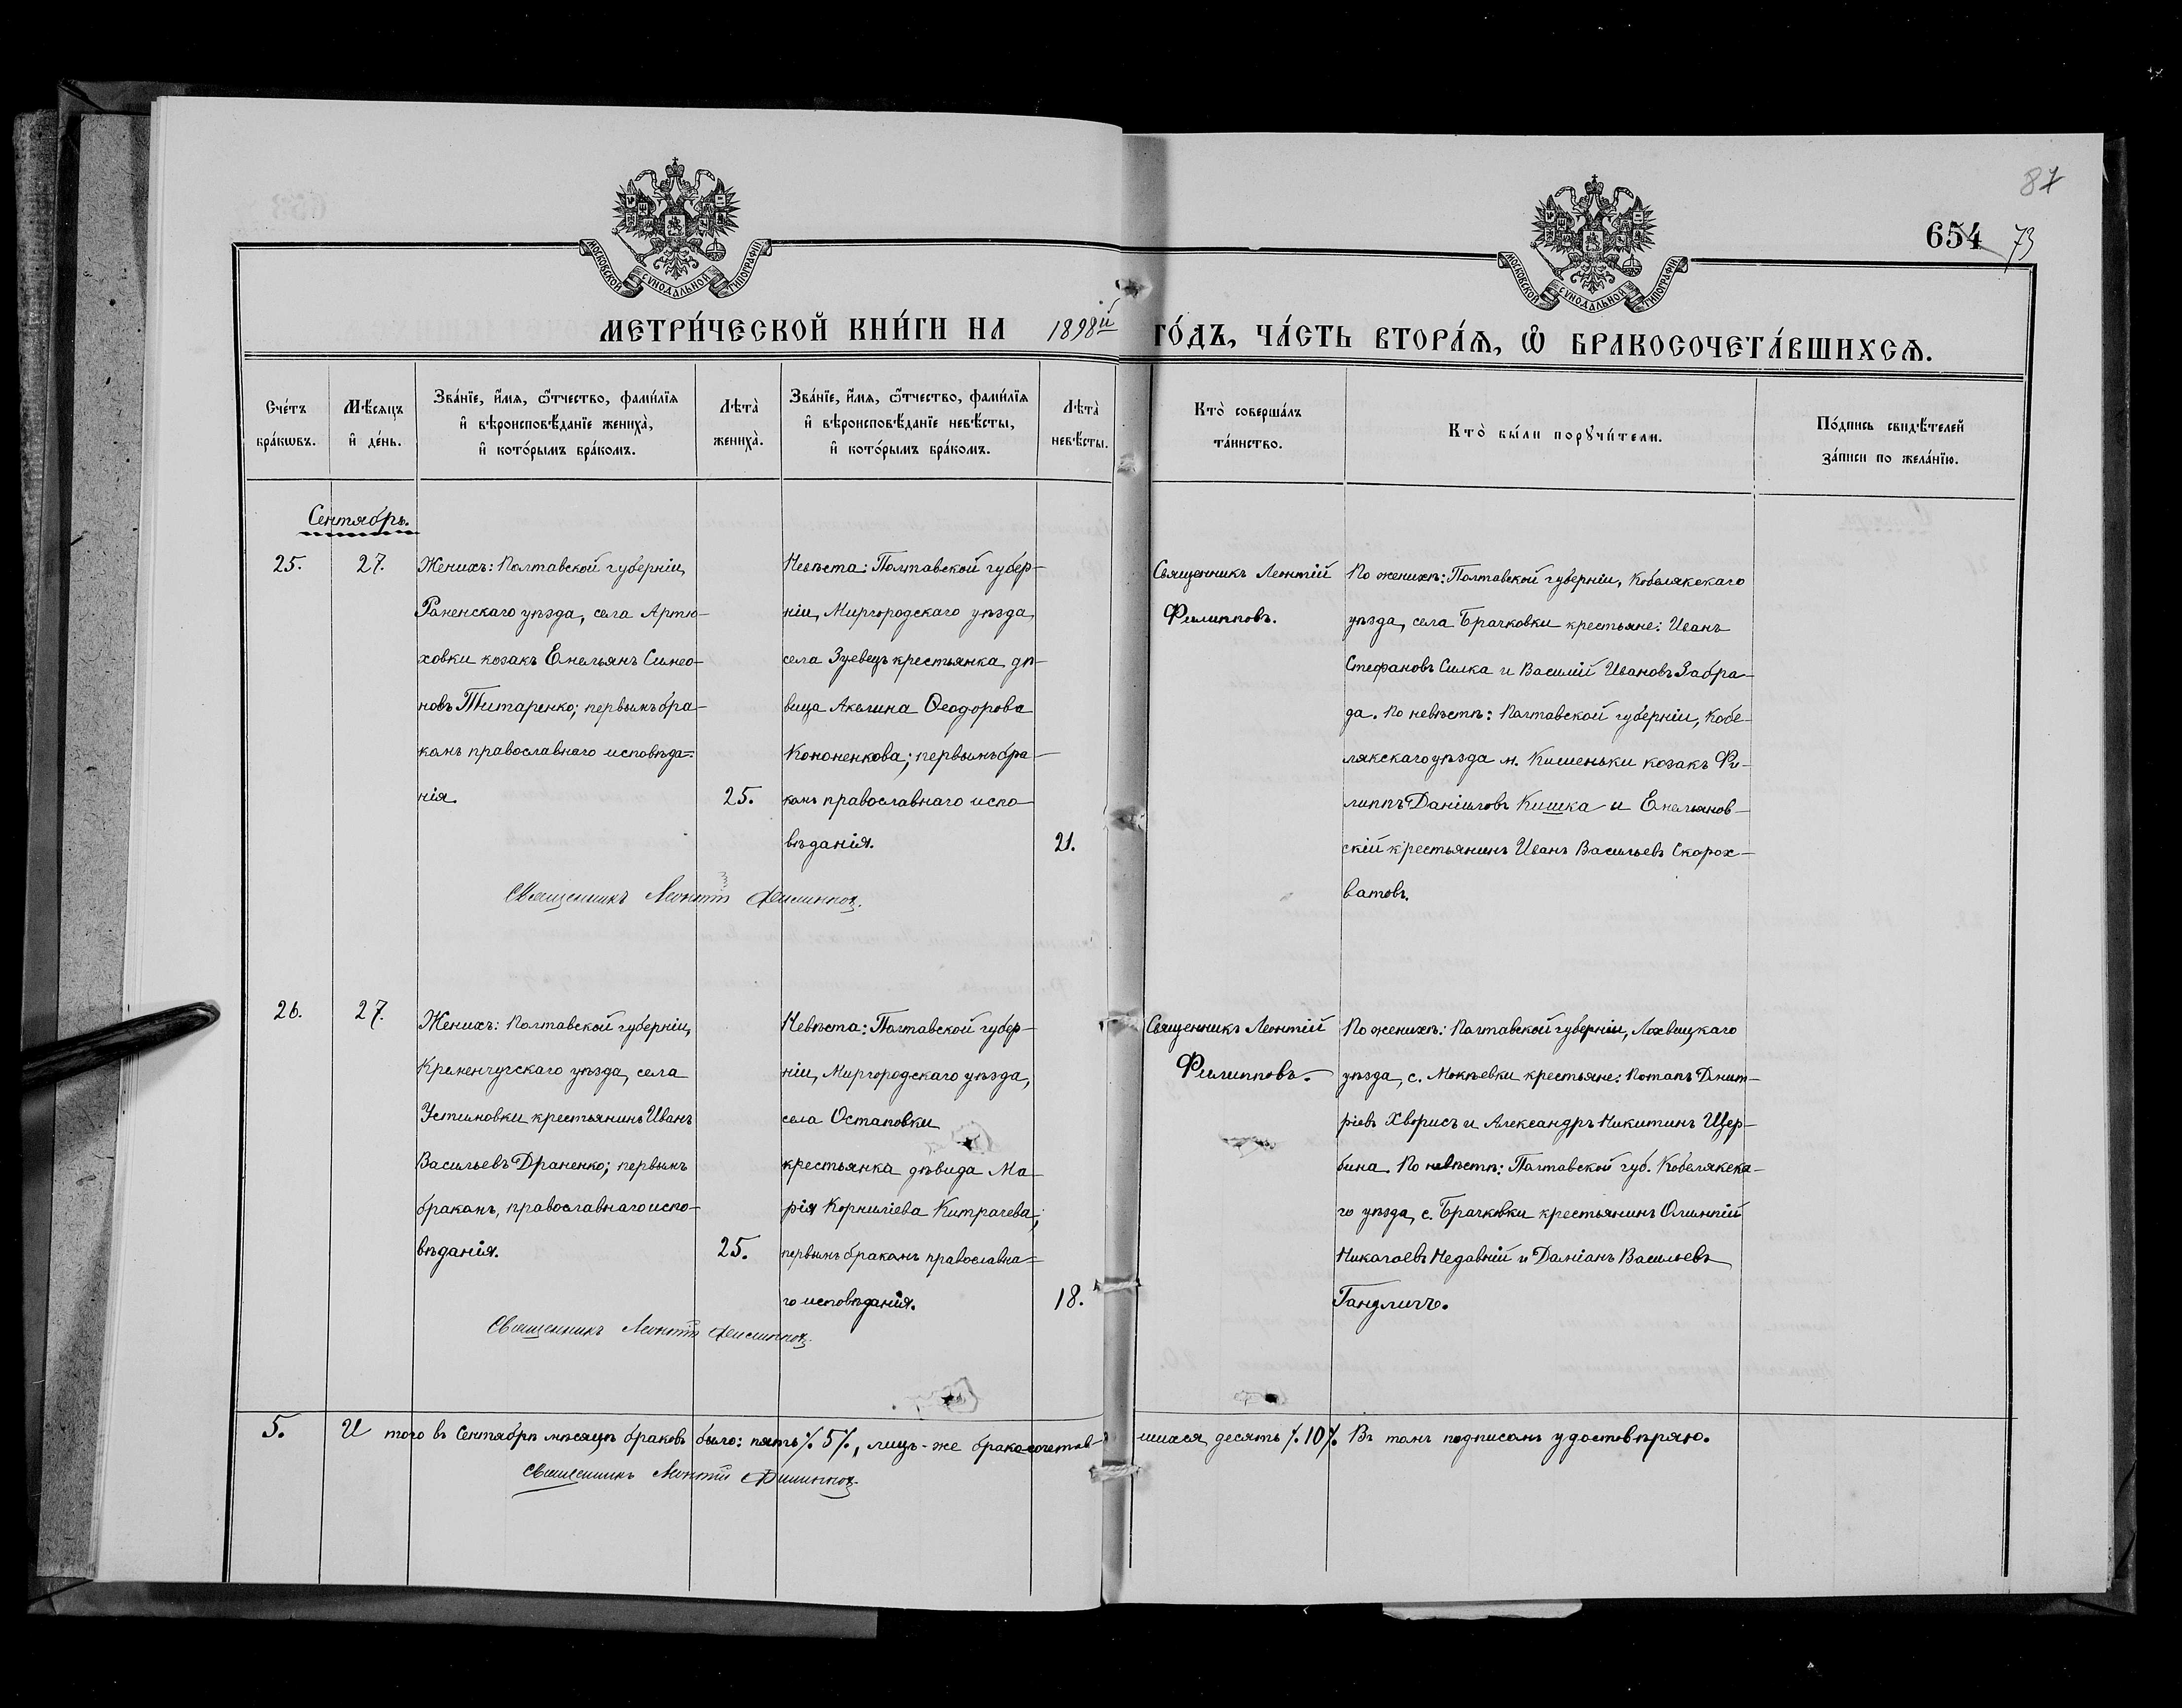 87
654 73
МОСКОВСКОЙ СУНОДАЛЬНОЙ ТИПОГРАФІИ
МОСКОВСКОЙ СУНОДАЛЬНОЙ ТИПОГРАФІИ
МЕТРИ́ЧЕСКОЙ КНИ́ГИ НА 1898й ГО́ДЪ, ЧА́СТЬ ВТОРА́Ѧ, Ѽ БРАКОСОЧЕТА́ВШИХСѦ.
Сче́тъ
бра́кѡвъ.
Мѣ́сяцъ
и҆ де́нь.
Зва́нїе, и҆́мя, ѻ҆́тчество, фами́лїя
и҆ вѣроисповѣ́данїе жениха̀,
и҆ кото́рымъ бра́комъ.
Лѣта̀
жениха̀.
Зва́нїе, и҆́мя, ѻ҆́тчество, фами́лїя
и҆ вѣроисповѣ́данїе невѣ́сты,
и҆ кото́рымъ бра́комъ.
Лѣта̀
невѣ́сты.
Кто̀ соверша́лъ
та́инство.
Кто̀ бы́ли порꙋчи́тели.
По́дпись свидѣ́телей
за́писи по жела́нїю.
Сентябрь.
25.
27.
Женихъ: Полтавской губерніи,
Роменскаго уѣзда, села Артю-
ховки козакъ Емельянъ Симео-
новъ Титаренко; первымъ бра-
комъ православнаго исповѣда=
нія.
25.
Невѣста: Полтавской губер-
ніи, Миргородскаго уѣзда,
села Зуевецъ крестьянка дѣ-
вица Акилина Ѳеодорова
Кононенкова; первымъ бра-
комъ православнаго испо-
вѣданія.
21.
Священникъ Леонтій
Филипповъ.
По женихѣ: Полтавской губерніи, Кобелякскаго
уѣзда, села Брачковки крестьяне: Иванъ
Стефановъ Силка и Василій Ивановъ Забра-
да. По невѣстѣ: Полтавской губерніи, Кобе-
лякскаго уѣзда м. Кишеньки козакъ Фи-
липпъ Даніиловъ Кишка и Емельянов-
скій крестьянинъ Иванъ Васильевъ Скорох-
ватовъ.
Священникъ Леонтій Филиппов.
26.
27.
Женихъ: Полтавской губерніи,
Кременчугскаго уѣзда, села
Устимовки крестьянинъ Иванъ
Васильевъ Драненко; первымъ
бракомъ, православнаго испо-
вѣданія.
25.
Невѣста: Полтавской губер-
ніи, Миргородскаго уѣзда,
села Остаповки
крестьянка дѣвица Ма-
рія Корниліева Китрачева;
первымъ бракомъ православна=
го исповѣданія.
18.
Священникъ Леонтій
Филипповъ.
По женихѣ: Полтавской губерніи, Лохвицкаго
уѣзда, с. Мокѣевки крестьяне: Потапъ Димит-
ріевъ Хворисъ и Александръ Никитинъ Щер-
бина. По невѣстѣ: Полтавской губ. Кобелякска-
го уѣзда, с. Брачковки крестьянинъ Олимпій
Николаевъ Недавній и Даміанъ Васильевъ
Гандличъ.
Священникъ Леонтій Филиппов.
5. И того въ Сентябрѣ мѣсяцѣ браковъ было: пять ٪ 5٪, лицъ-же бракосочетав-шихся десять ٪ 10٪ Въ томъ подписомъ удостовѣряю.
Священникъ Леонтій Филиппов.